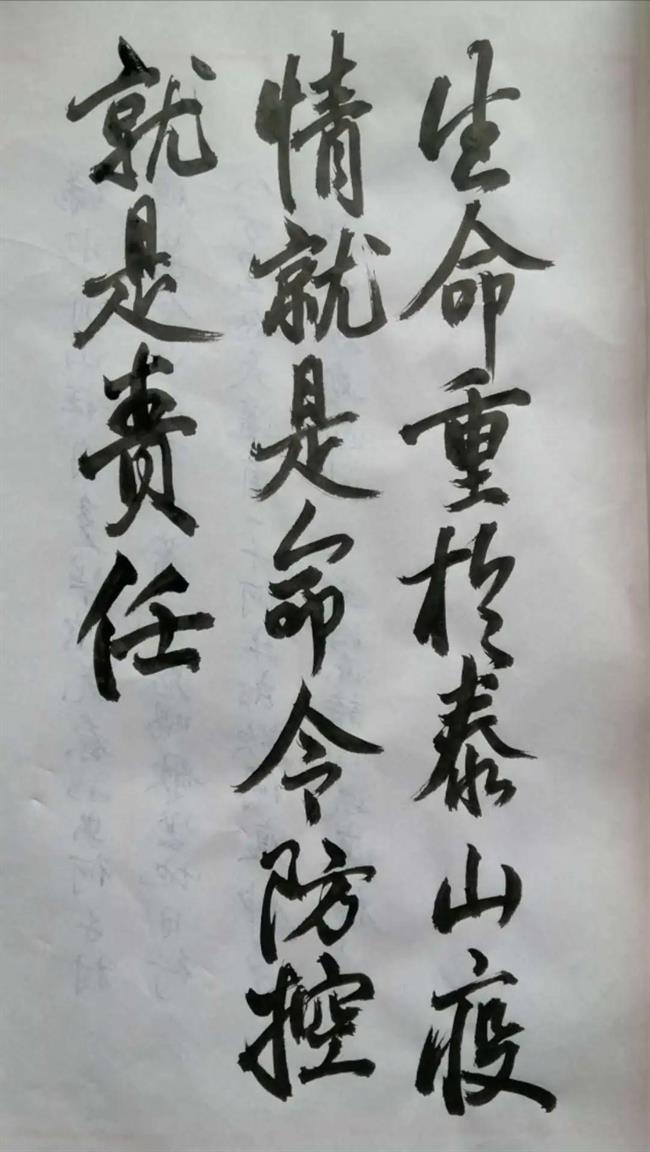 生命重於泰山疫
情就是命令防控
就是責任